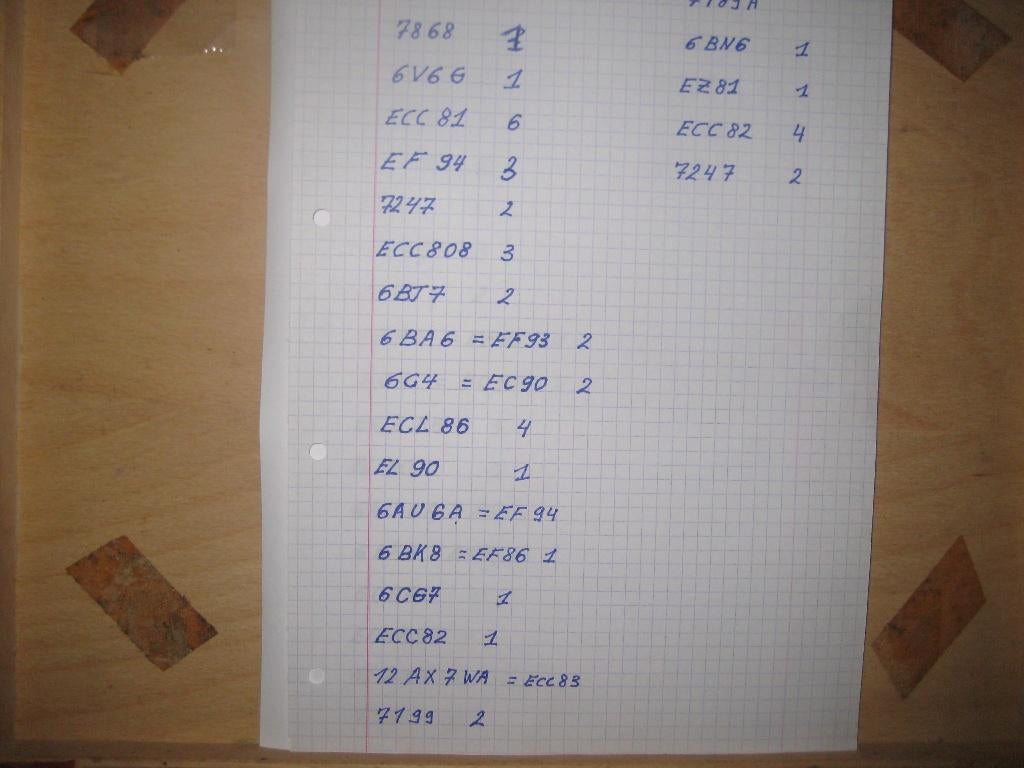 7868 1
6V6G 1
ECC 81 6
EF 94 3
7247 2
ECC808 3
6BJ7 2
6BA6 = EF93 2
6G4 = EC90 2
ECL 86 4
EL 90 1
6AU6A = EF94
6BK8 = EF86 1
6CG7 1
ECC82 1
12AX7WA = ECC83
7199 2
6BN6 1
EZ81 1
ECC82 4
7247 2